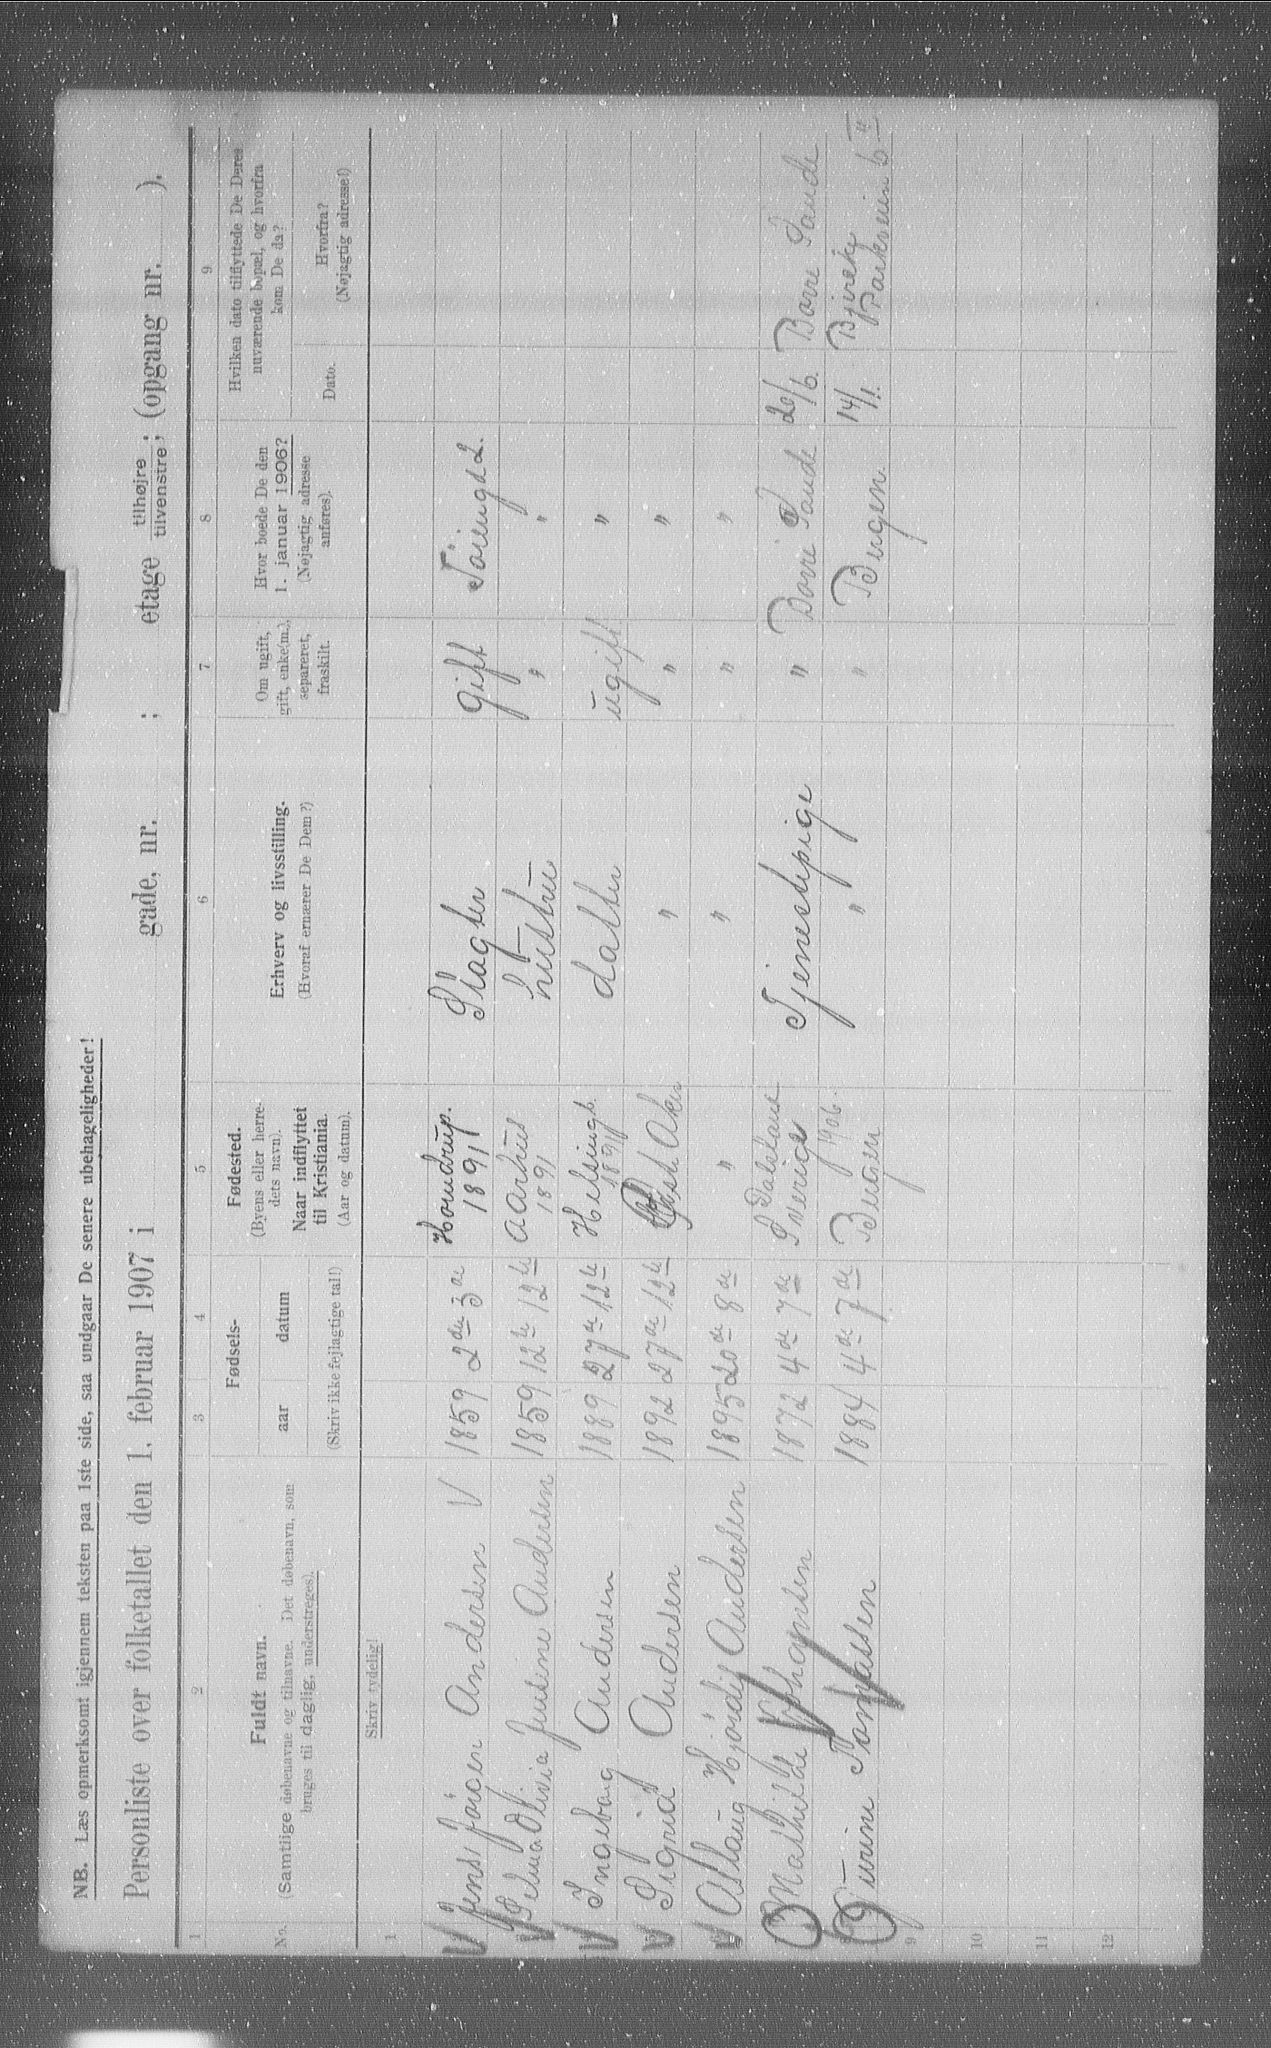 NB. Læs opmerksomt igjennem teksten paa 1ste side, saa undgaar De senere ubehageligheder!
Personliste over folketallet den 1. februar 1907 i gade, nr. ; etage tilhøjre tilvenstre; (opgang nr. ).
1 2 3 4 5 6 7 8 9
No.
Fuldt navn.
(Samtlige døbenavne og tilnavne. Det døbenavn, som
bruges til daglig, understreges).
Fødsels-
aar datum
(Skriv ikke fejlagtige tal!)
Fødested.
(Byens eller herre-
dets navn).
Naar indflyttet
til Kristiania.
(Aar og datum).
Erhverv og livsstilling.
(Hvoraf ernærer De Dem?)
Om ugift,
gift, enke(m.),
separeret,
fraskilt.
Hvor boede De den
1. januar 1906?
(Nøjagtig adresse
anføres).
Hvilken dato tilflyttede De Deres
nuværende bopæl, og hvorfra
kom De da?
Dato.
Hvorfra?
(Nøjagtig adresse!)
Skriv tydelig!
1
Jens Jörgen Andersen V 1859 2de 3de Hovudrup. 1891 Slagter gift
Selma Olivia Jensine Andersen 1859 12te 12te Aarhus 1891 hustru " "
Ingeborg Andersen 1889 27de 12te Helsingb. 1891 datter ugift "
Sigrid Andersen 1892 27de 12te Aker " " "
Aslaug Hjördis Andersen 1895 20de 8de " " " "
Mathilde Johansen 1872 4de 7de Dalsland Sverige Tjenestepige " Borre Sande 20/6. Borre Sande
Tomassen 1884 4de 7de 1906. Bergen " " Bergen 14/1. Parkveien 6
9
10
11
12